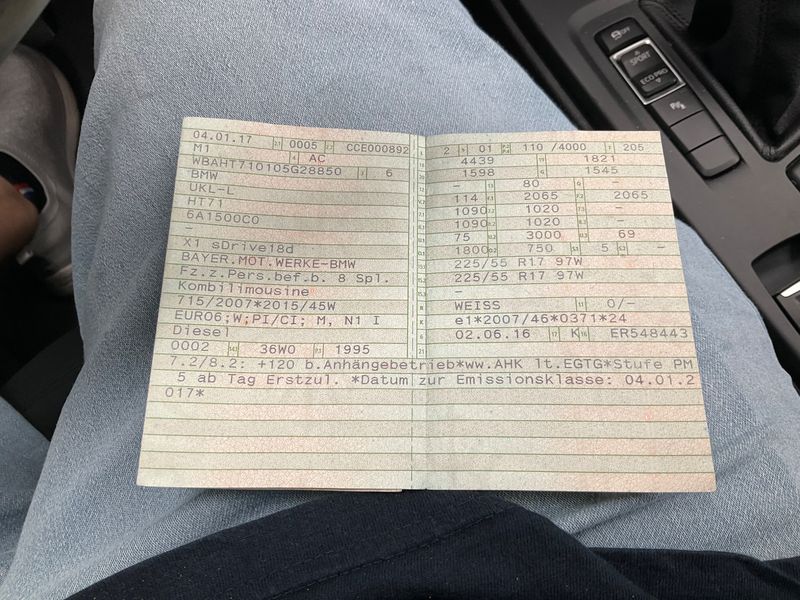 04.01.17 0005 CCE000892
M1 AC
WBAHT710105G28850 6
BMW
UKL-L
HT71
6A1500C0
–
X1 sDrive18d
BAYER.MOT.WERKE-BMW
Fz.z.Pers.bef.b. 8 Spl.
Kombilimousine
715/2007*2015/45W
EURO6;W;PI/CI; M, N1 I
Diesel
0002 36W0 1995
2 01 110 /4000 205
4439 1821
1598 1545
– 80 –
114 2065 2065
1090 1020 –
1090 1020 –
75 3000 69
1800 750 5 –
225/55 R17 97W
225/55 R17 97W
–
WEISS 0/–
e1*2007/46*0371*24
02.06.16 K ER548443
7.2/8.2: +120 b.Anhängebetrieb*ww.AHK lt.EGTG*Stufe PM
5 ab Tag Erstzul. *Datum zur Emissionsklasse: 04.01.2
017*
OFF
SPORT
ECO PRO